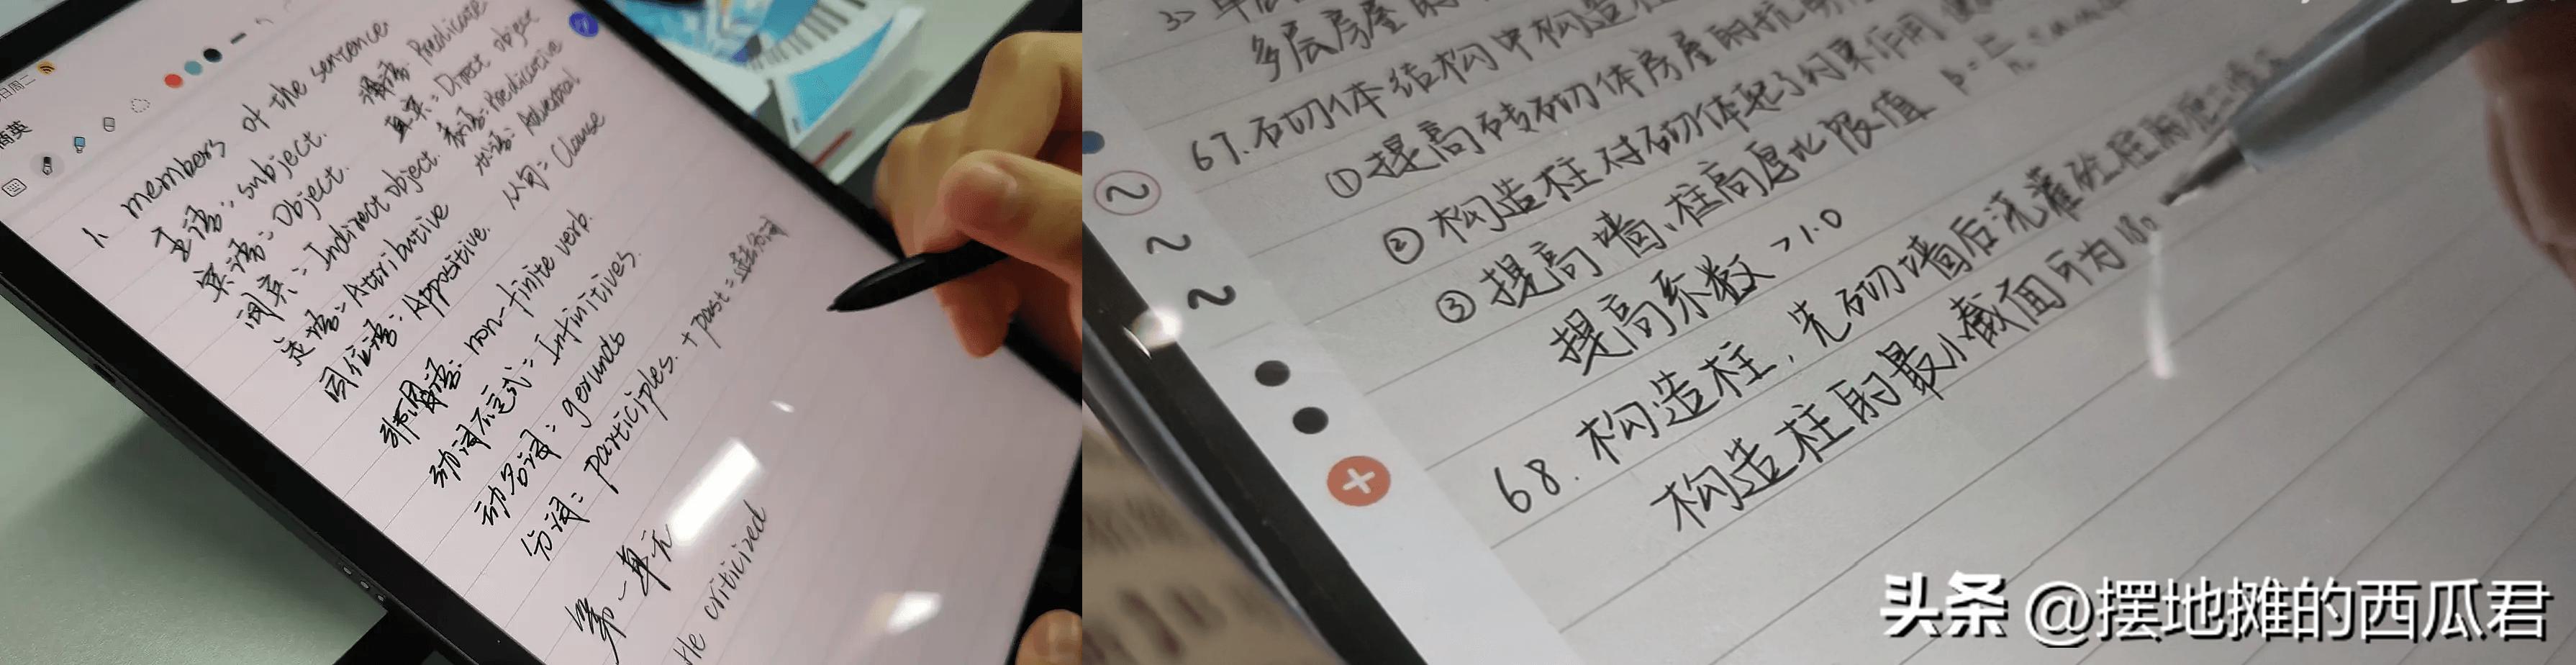 日周二
商英
1. members of the sentence
主语: subject. 谓语: Predicate
宾语: Object. 直宾: Direct object
间宾: Indirect object. 表语: Predicative
定语: Attributive 状语: Adverbial
同位语: Appositive. 从句: Clause
非谓语: non-finite verb.
动词不定式: Infinitives.
动名词: gerunds
分词: participles. + past = 过去分词
第一单元
criticized
多层房屋的
67.砌体结构中构造柱
①提高砖砌体房屋的抗
②构造柱对砌体起了约束作用
③提高墙、柱高厚比限值
提高系数>1.0
68.构造柱,先砌墙后浇灌砼
构造柱的最小截面可为180
头条 @摆地摊的西瓜君